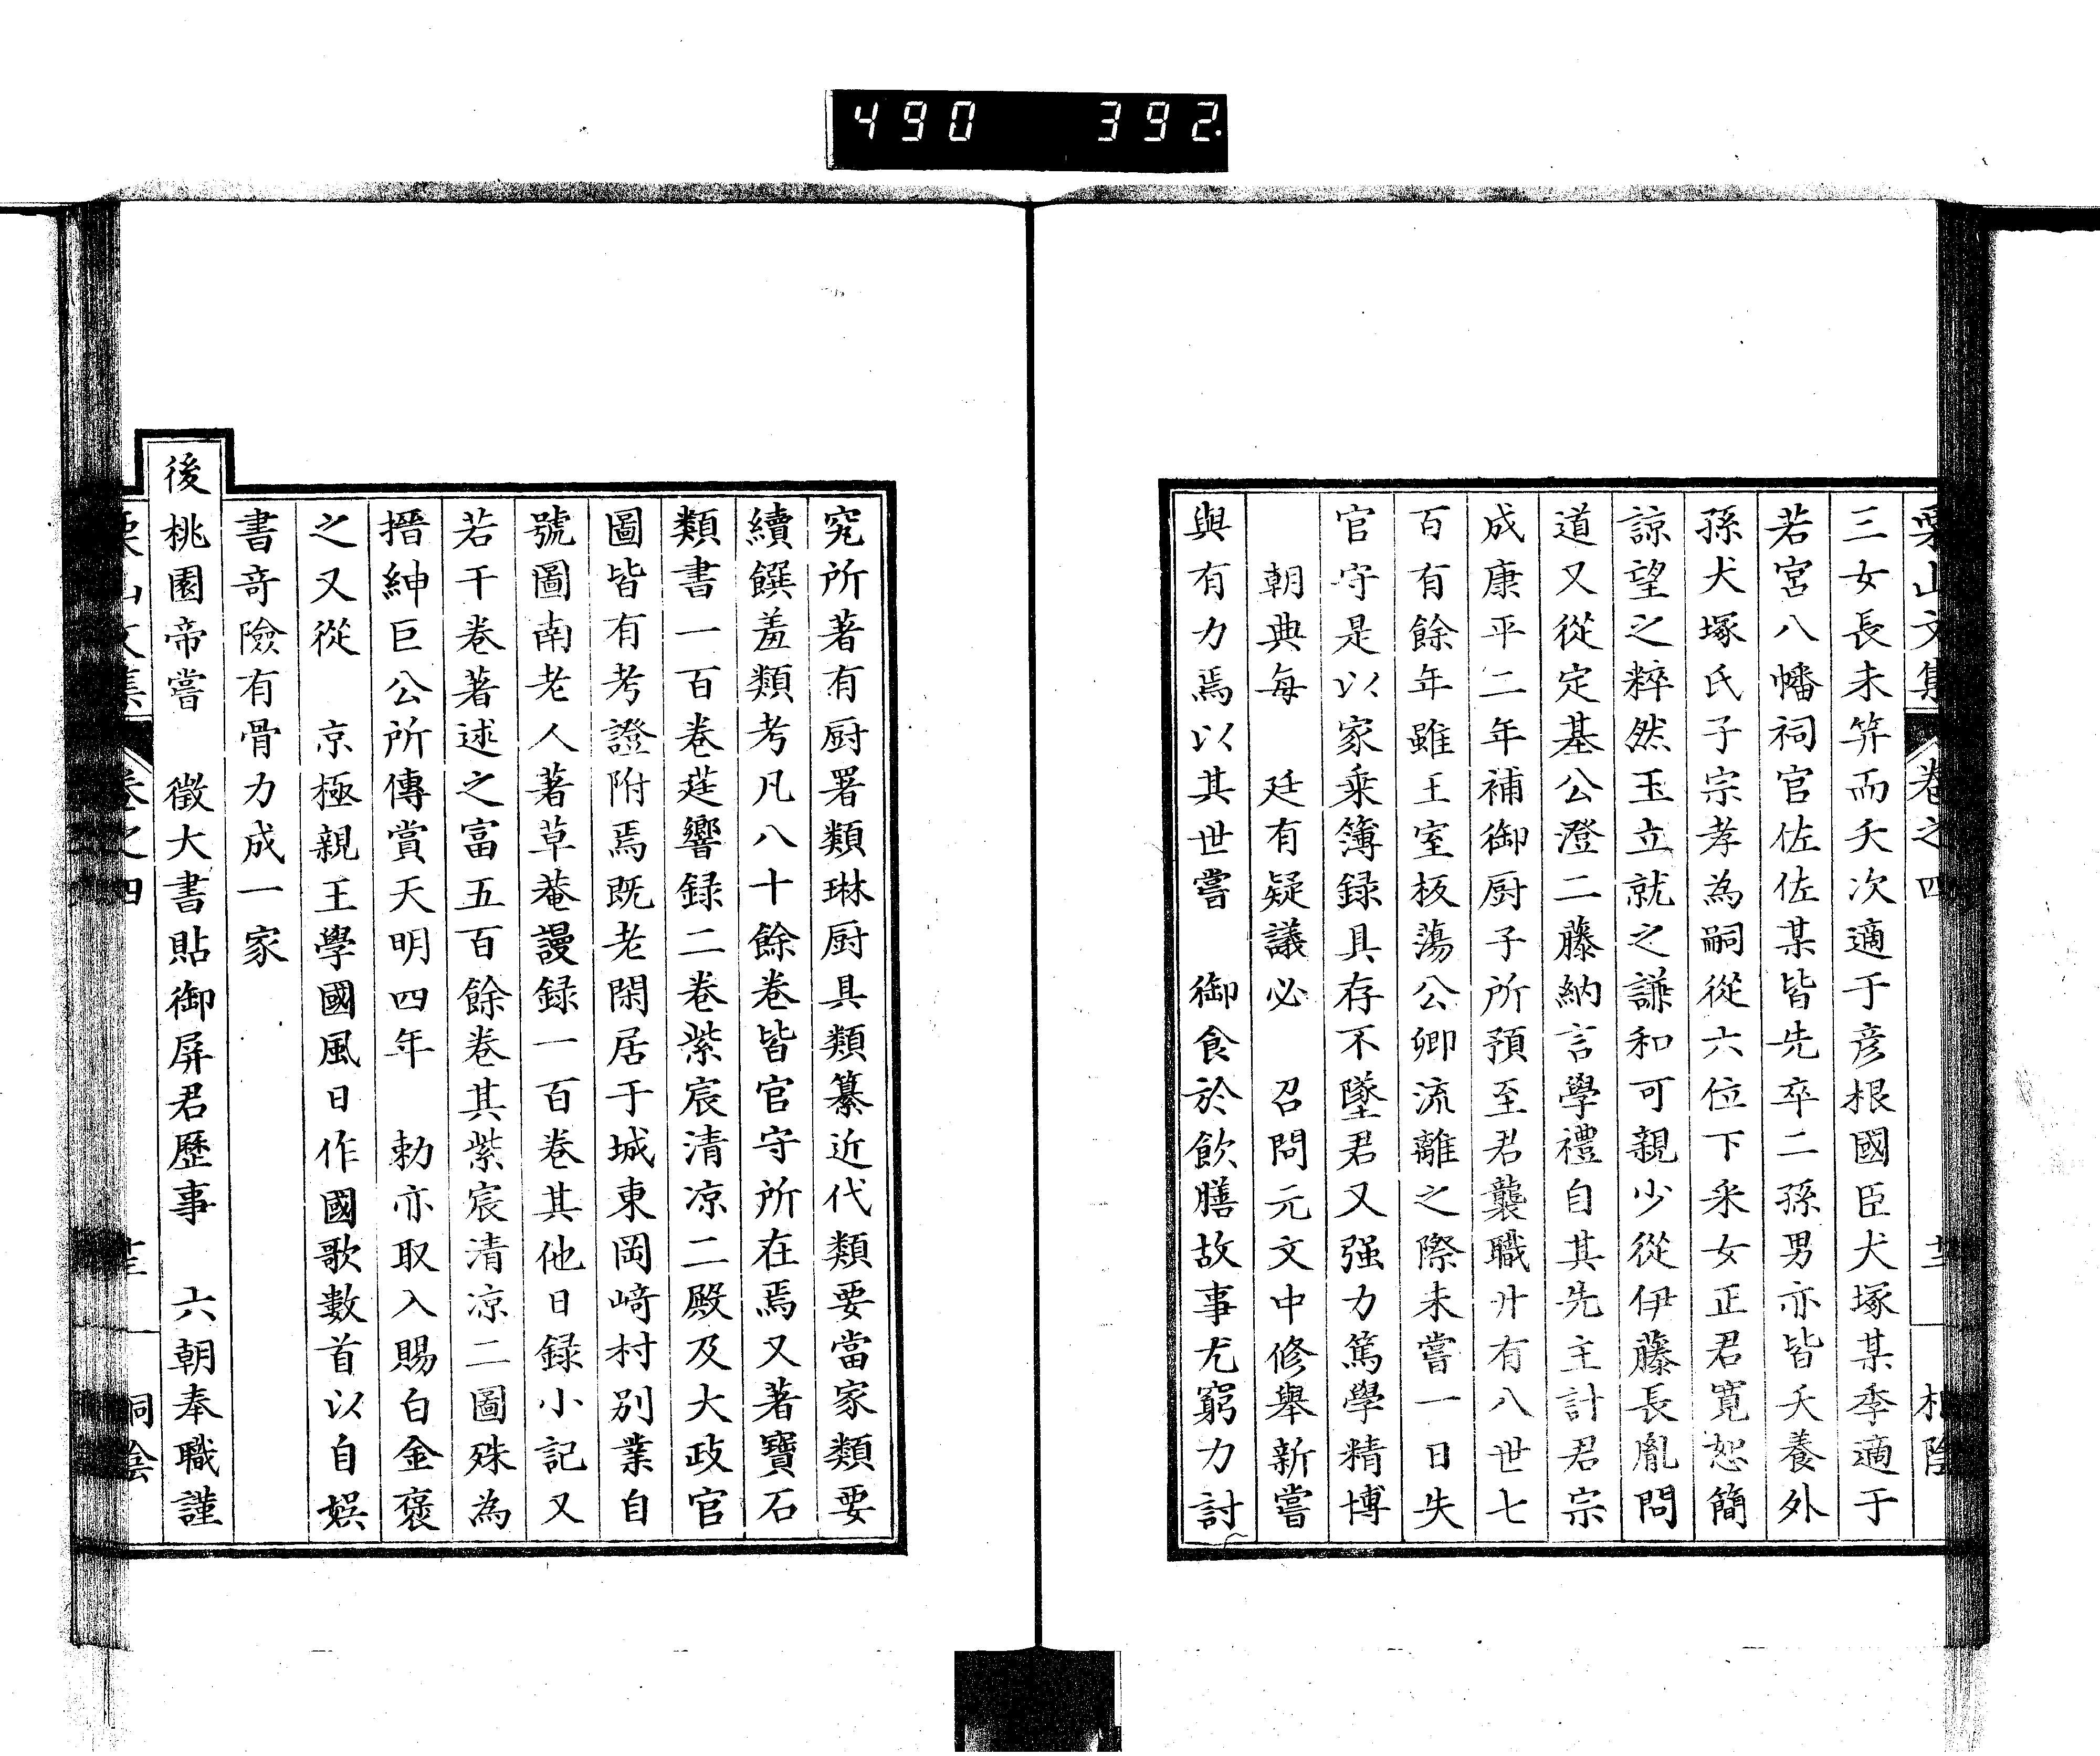 490 392
栗山文集 卷之四
三女長未笄而夭次適于彦根國臣犬塚某季適于
若宮八幡祠官佐佐某皆先卒二孫男亦皆夭養外
孫犬塚氏子宗孝為嗣從六位下釆女正君寛恕簡
諒望之粹然玉立就之謙和可親少從伊藤長胤問
道又從定基公澄二藤納言學禮自其先主計君宗
成康平二年補御厨子所預至君襲職廾有八世七
百有餘年雖王室板蕩公卿流離之際未嘗一日失
官守是以家乗簿録具存不墜君又强力篤學精博
朝典每 廷有疑議必 召問元文中修舉新嘗
與有力焉以其世嘗 御食於飲膳故事尤窮力討
究所著有厨署類琳厨具類纂近代類要當家類要
續饌羞類考凡八十餘卷皆官守所在焉又著寶石
類書一百卷莛響録二卷紫宸清凉二殿及大政官
圖皆有考證附焉既老閑居于城東岡﨑村別業自
號圖南老人著草菴謾録一百卷其他日録小記又
若干卷著述之富五百餘卷其紫宸清凉二圖殊為
搢紳巨公所傳賞天明四年 勅亦取入賜白金褒
之又從 京極親王學國風日作國歌數首以自娯
書竒險有骨力成一家
後桃園帝嘗 徵大書貼御屏君歷事 六朝奉職謹
栗山文集 卷之四